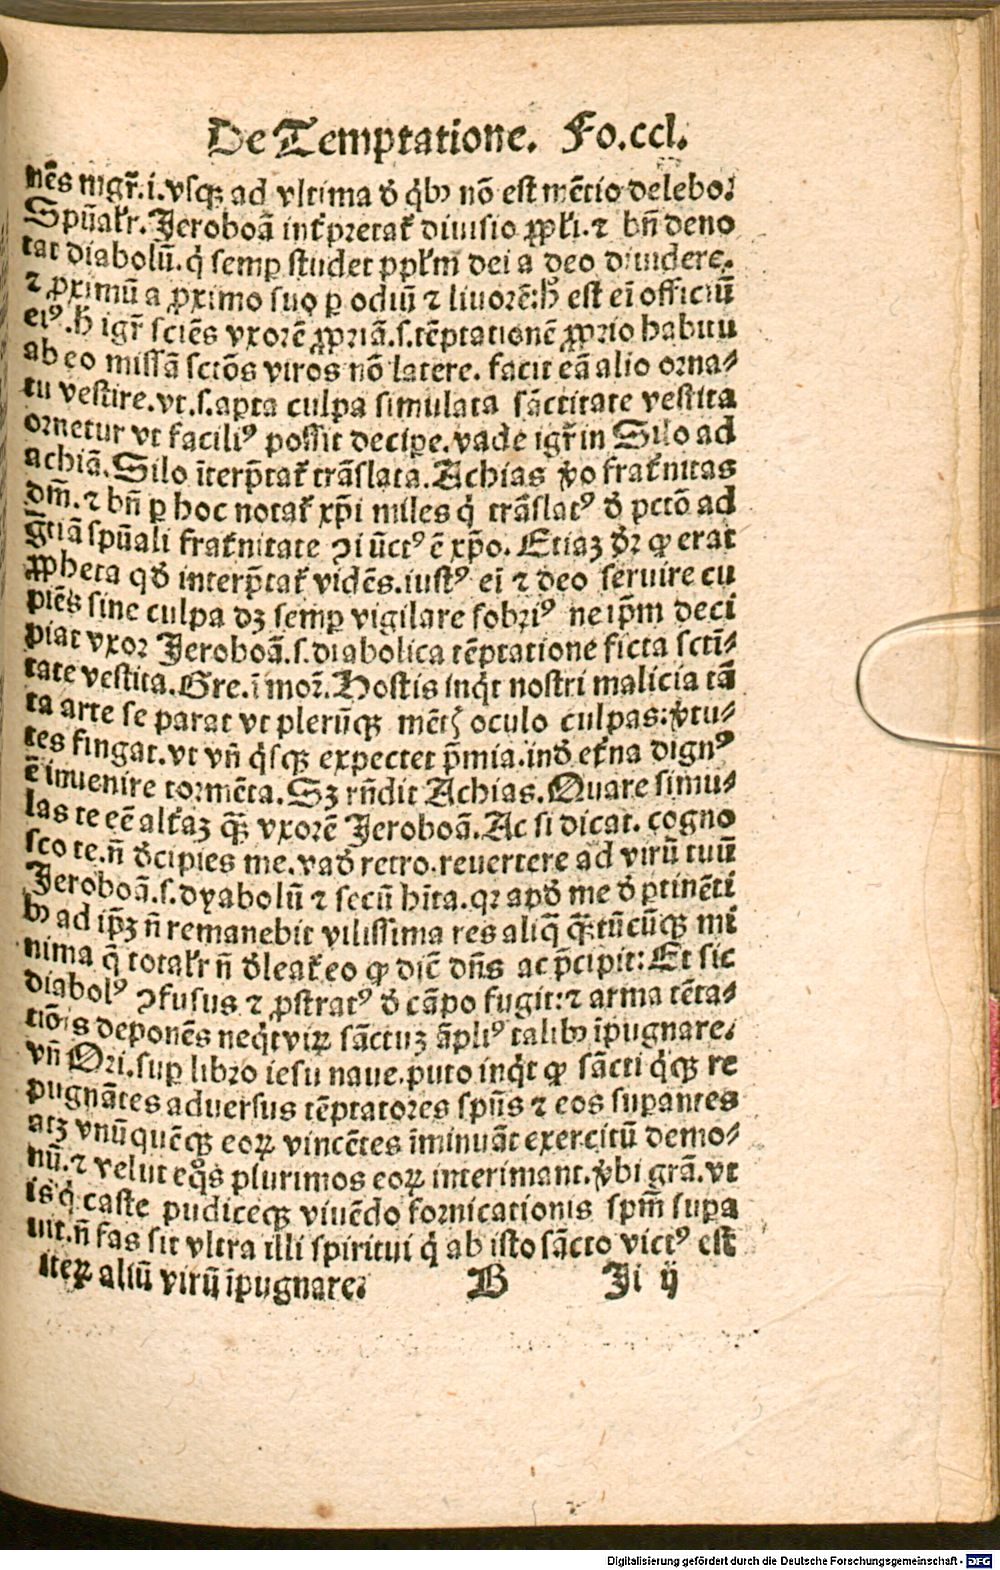 De Temptatione. Fo.ccl.
nēs nigr̄.i.vsqꝫ ad vltima ꝺ̄ qͥbꝰ nō est mētio delebo.
Spūalr̄. Jeroboā int̄pretat̄ diuisio pp̄li.⁊ bn̄ deno
tat diabolū.qͥ semꝑ studet pplm̄ dei a deo diuidere.
⁊ ꝓximū a ꝓximo suo ꝑ odiū ⁊ liuorē:h̄ est ei officiū
eiꝰ.h̄ igr̄ sciēs vxorē ꝓpriā.s.tēptationē ꝓprio habitu
ab eo missā sctōs viros nō latere. facit eā alio orna⸗
tu vestire.vt.s.apta culpa simulata sāctitate vestita
ornetur vt faciliꝰ possit deciꝑe.vade igr̄ in Silo ad
achiā.Silo īterp̄tat̄ trāslata.Achias v̄o frat̄nitas
dn̄i.⁊ bn̄ ꝑ hoc notat̄ xp̄i miles qͥ trāslatꝰ ꝺ̄ pctō ad
gr̄iā spūali frat̄nitate ꝯiūctꝰ ē xp̄o. Etiaꝫ dr̄ ꝙ erat
ꝓpheta qd̄ interp̄tat̄ vidēs.iustꝰ ei ⁊ deo seruire cu
piēs sine culpa dꝫ semꝑ vigilare sobriꝰ ne ip̄m deci
piat vxor Jeroboā.s.diabolica tēptatione ficta sctī⸗
tate vestita.Gre.ī mor̄.Hostis inqͥt nostri malicia tā
ta arte se parat vt plerūqꝫ mētꝭ oculo culpas:v̄tu⸗
tes fingat.vt vn̄ qͥsqꝫ expectet p̄mia.ind̄ et̄na dignꝰ
ē inuenire tormēta.Sꝫ rn̄dit Achias.Quare simu⸗
las te eē alt̄aꝫ qꝫ̄ vxorē Jeroboā.Ac si dicat. cogno
sco te.n̄ ꝺ̄cipies me.vad̄ retro.reuertere ad virū tuū
Jeroboā.s.dyabolū ⁊ secū hīta.qꝛ apd̄ me ꝺ̄ ꝑtinēti
bꝰ ad ip̄ꝫ n̄ remanebit vilissima res aliq̄ qꝫ̄tūcūqꝫ mi
nima q̄ totalr̄ n̄ ꝺ̄leat̄ eo ꝙ dic̄ dn̄s ac p̄cipit:Et sic
diabolꝰ ꝯfusus ⁊ ꝓstratꝰ ꝺ̄ cāpo fugit:⁊ arma tēta⸗
tiōis deponēs neqͥt virꝝ sāctuꝫ āpliꝰ talibꝰ īpugnare.
vn̄ Ori.suꝑ libro iesu naue.puto inqͥt ꝙ sācti qͥqꝫ re
pugnātes aduersus tēptatores spūs ⁊ eos suꝑantes
atꝫ vnūquēqꝫ eoꝝ vincētes īminuāt exercitū demo⸗
nū.⁊ velut eqͦs plurimos eoꝝ interimant.v̄bi grā.vt
is qͥ caste pudiceqꝫ viuēdo fornicationis spm̄ suꝑa
uit.n̄ fas sit vltra illi spiritui qͥ ab isto sācto victꝰ est
iteꝝ aliū virū īpugnare. B Ji ij
Digitalisierung gefördert durch die Deutsche Forschungsgemeinschaft - DFG